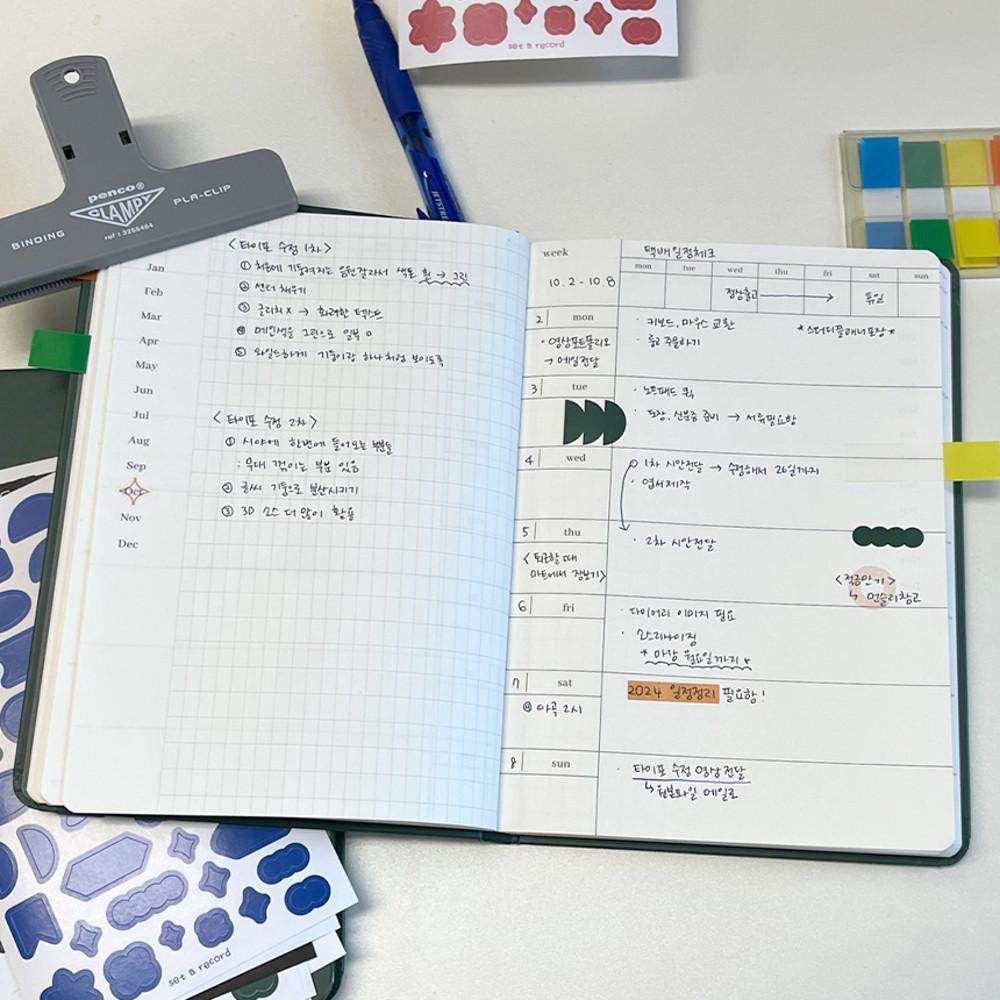 set a record
penco®
CLAMPY
BINDING
PLA-CLIP
ref : 3255464
JETSTRE
Jan
Feb
Mar
Apr
May
Jun
Jul
Aug
Sep
Oct
Nov
Dec
<타이포 수정 1차>
① 처음에 기둥여지는 음원잘라서 샘플 흰 → 그린
② 센터 채우기
③ 글리치 x → 화려한 텍스트
④ 메인색을 그린으로 일부 o
⑤ 와일드하게 기둥이랑 하나처럼 보이도록
<타이포 수정 2차>
① 시야에 한번에 들어오는 뿐들
: 무대 꺾이는 부분 있음
② 글씨 기둥으로 분산시키기
③ 3D 소스 더 많이 활용
week
10.2 - 10.8
택배일정체크
mon tue wed thu fri sat sun
정상출고 → 휴일
2 mon
· 영상포트폴리오
→ 메일전달
· 키보드, 마우스 교환
· 중고 주울하기
*스터디플래너포장*
3 tue
· 노트패드 퀵
· 도장, 신분증 준비 → 서류필요함
4 wed
1차 시안전달 → 수정해서 26일까지
· 엽서제작
5 thu
<퇴근할 때
마트에서 장보기>
· 2차 시안전달
<적금만기>
↳ 먼슬리참고
6 fri
· 다이어리 이미지 필요
· 소스리사이징
* 마감 월요일까지 *
7 sat
마곡 2시
2024 일정정리 필요함!
8 sun
· 타이포 수정 영상전달
↳ 원본파일 메일로
set a record